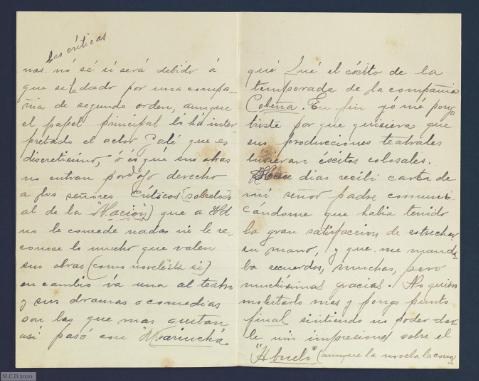 las críticas
nas no sé si será debido á
que se ha dado por una compa-
ñia de segundo orden, aunque
el papel principal lo ha inter
pretado el actor que es
discretisimo, ó es que sus obras
no entran por ojo derecho
a los señores críticos (sobretodo
al de la Nación) que a Vd
no le concede nada ni le re-
conoce lo mucho que valen
sus obras (como novelista si)
en cambio va una al teatro
y sus dramas o comedias
son las que mas gustan
así pasó con Mariucha
que fué el éxito de la
temporada de la compañia
Cobeña. En fin yo me pongo
triste por que quisiera que
sus producciones teatrales
tuvieran éxitos colosales.
Hace dias recibí carta de
mi señor padre comuni-
cándome que habia tenido
la gran satisfaccion de estrechar
su mano, y que me manda
ba recuerdos, muchas, pero
muchísimas gracias. No quiero
molestarlo mas y pongo punto
final sintiendo no poder dar
le mis impresiones sobre el
"Abuelo" (aunque la novela la conoz